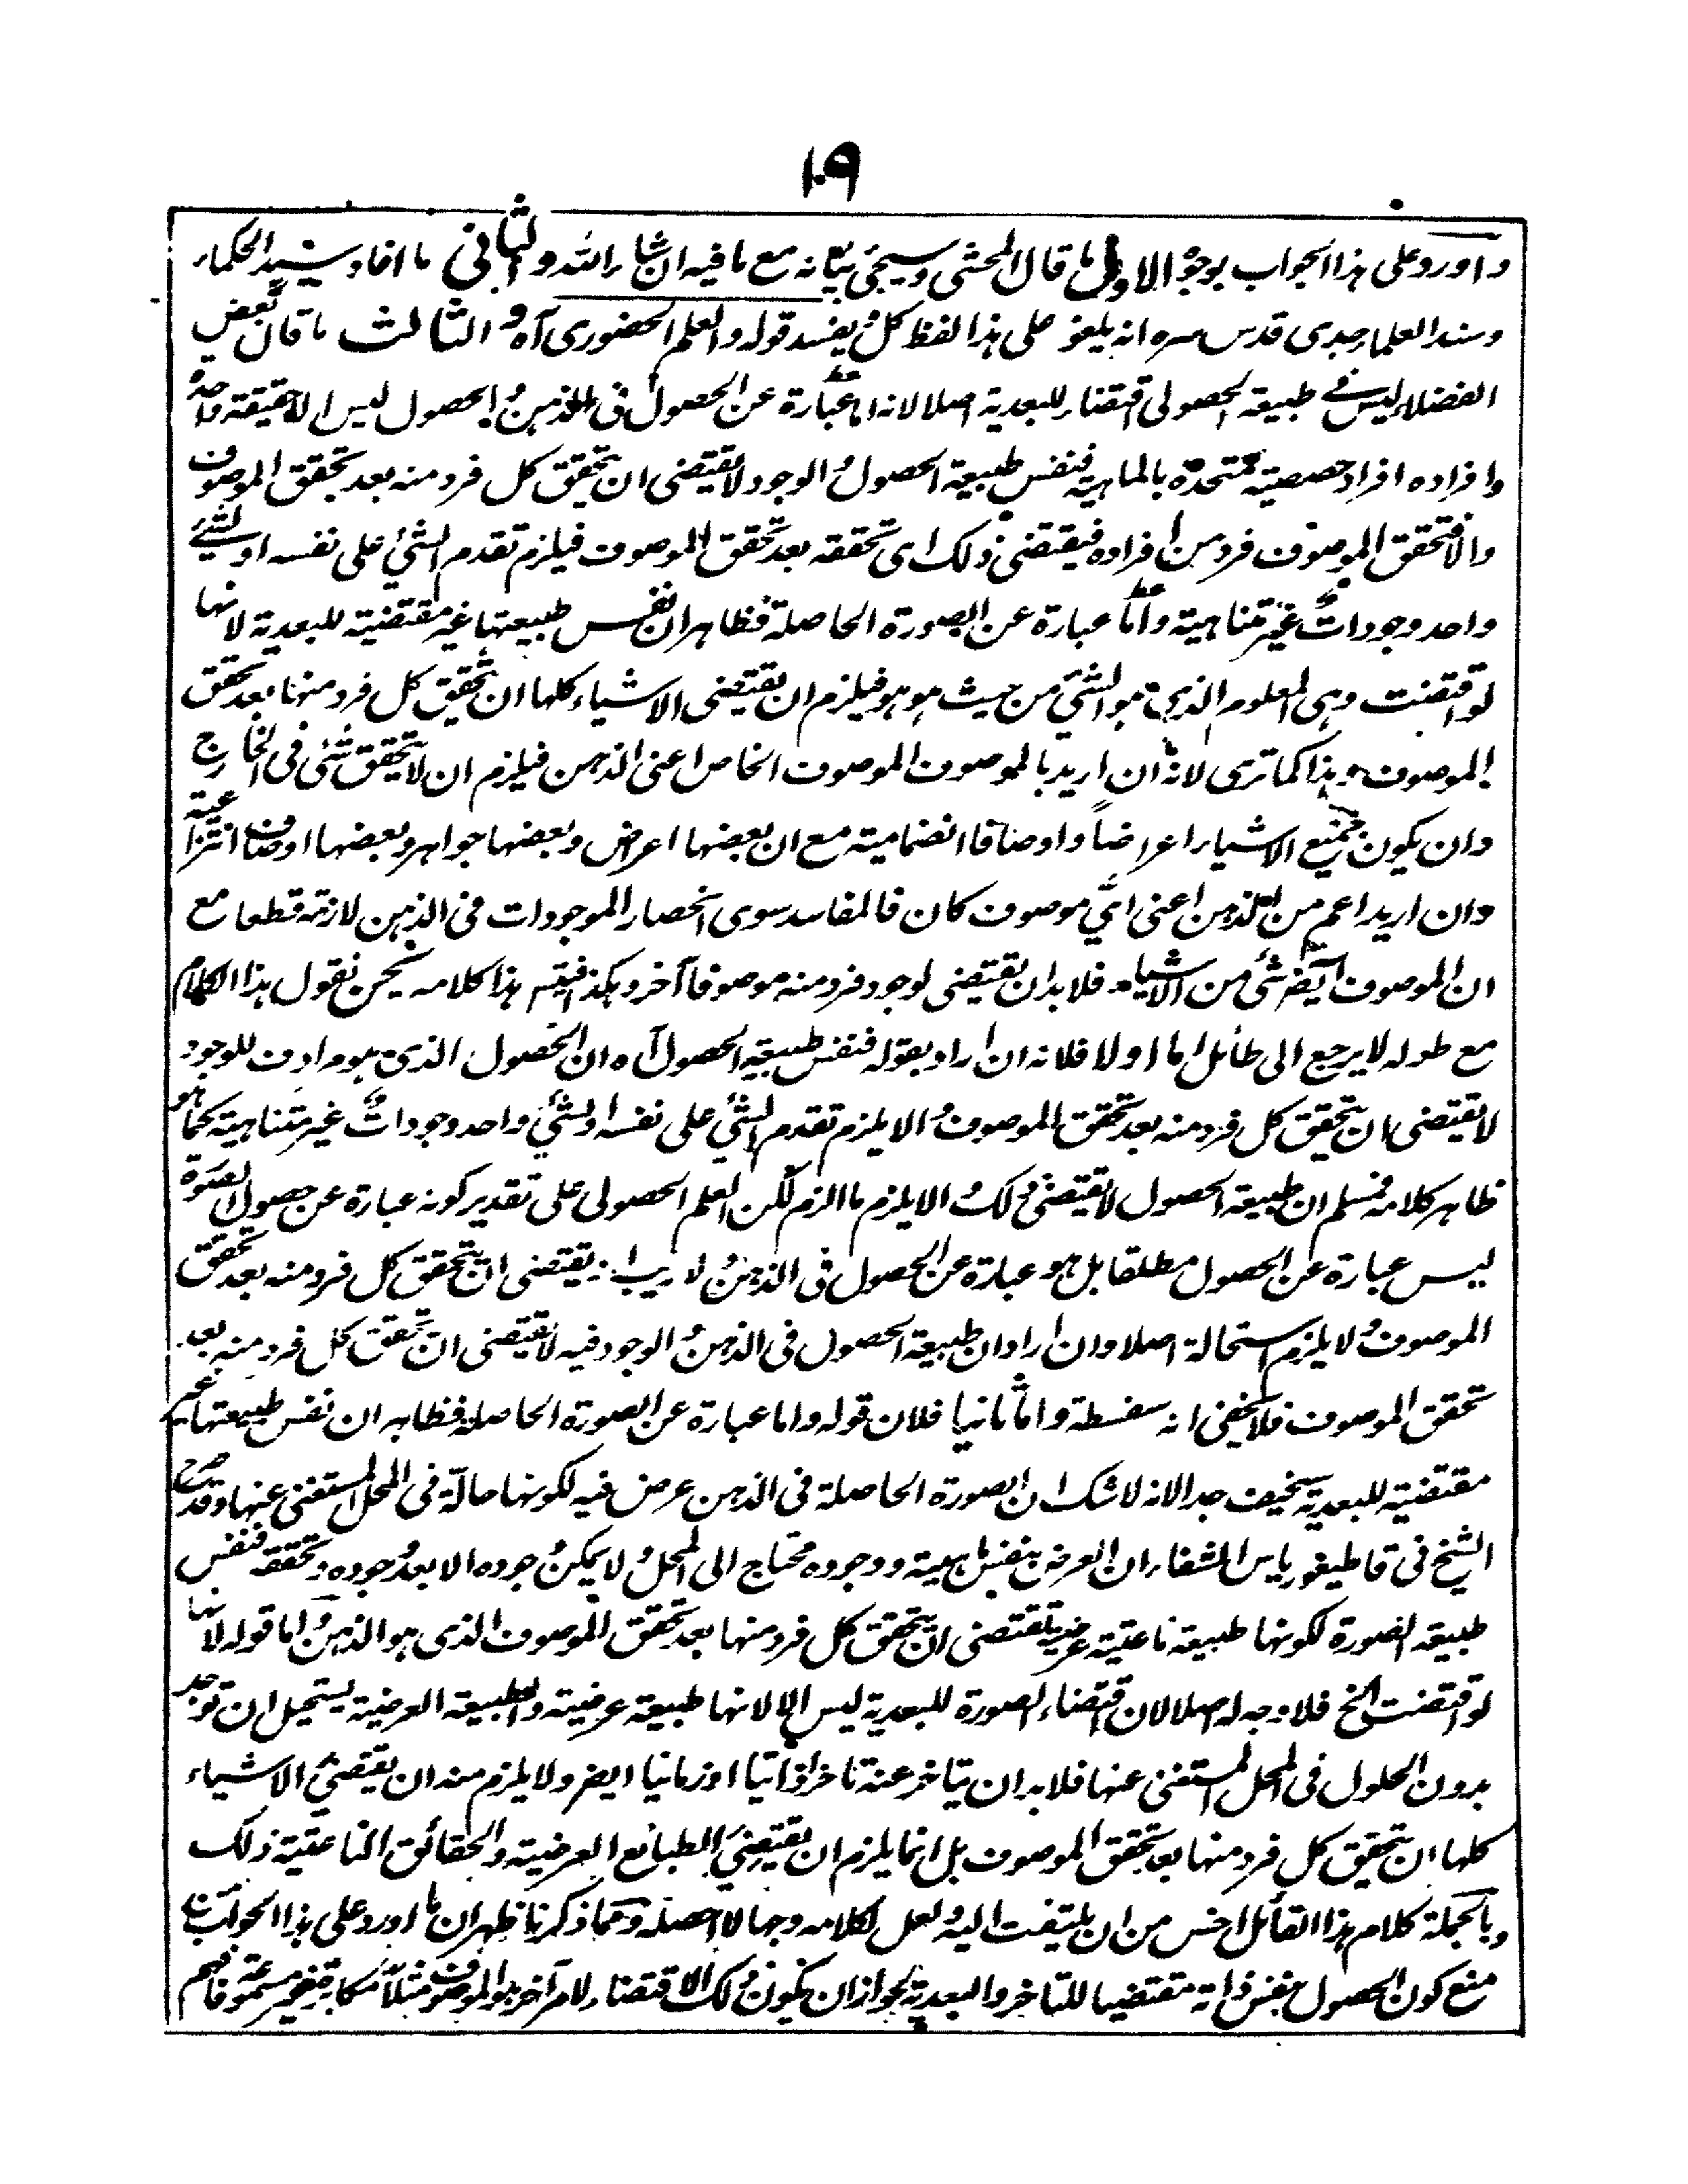 ١٠٩
واورد على هذا الجواب بوجوه الاول ما قال المحشى وسيجئ بيانه مع ما فيه ان شاء الله والثانى ما افاد سيد الحكماء
وسند العلماء جدى قدس سره انه يلغو على هذا لفظ كل ويفسد قوله والعلم الحضورى آه والثالث ما قال بعض
الفضلاء ليس فى طبيعة الحصولى اقتضاء للبعدية اصلا لانه اما عبارة عن الحصول فى الذهن والحصول ليس الا حقيقة واحدة
وافراده افراد حصصية متحدة بالماهية فنفس طبيعة الحصول والوجود لا يقتضى ان يتحقق كل فرد منه بعد تحقق الموصوف
والا فتحقق الموصوف فرد من افراده فيقتضى ذلك اى تحققه بعد تحقق الموصوف فيلزم تقدم الشئ على نفسه او لشئ
واحد وجودات غير متناهية واما عبارة عن الصورة الحاصلة فظاهر ان نفس طبيعتها غير مقتضية للبعدية لانها
لو اقتضت وهى المعلوم الذى هو الشئ من حيث هو هو فيلزم ان يقتضى الاشياء كلها ان يتحقق كل فرد منها بعد تحقق
الموصوف وهذا كما ترى لانه ان اريد بالموصوف الموصوف الخاص اعنى الذهن فيلزم ان لا يتحقق شئ فى الخارج
وان يكون جميع الاشياء اعراضاً واوصافا انضمامية مع ان بعضها اعراض وبعضها جواهر وبعضها اوصاف انتزاعية
وان اريد اعم من الذهن اعنى اىّ موصوف كان فالمفاسد سوى انحصار الموجودات فى الذهن لازمة قطعا مع
ان الموصوف ايضا شئ من الاشياء فلا بد ان يقتضى لوجود فرد منه موصوفا آخر وهكذا فيتم هذا كلامه نحن نقول هذا الكلام
مع طوله لا يرجع الى طائل اما اولا فلانه ان اراد بقوله فنفس طبيعة الحصول آه ان الحصول الذى هو مرادف للوجود
لا يقتضى ان يتحقق كل فرد منه بعد تحقق الموصوف والا يلزم تقدم الشئ على نفسه او لشئ واحد وجودات غير متناهية كما هو
ظاهر كلامه فمسلم ان طبيعة الحصول لا يقتضى ذلك والا يلزم ما الزم لكن العلم الحصولى على تقدير كونه عبارة عن حصول الصورة
ليس عبارة عن الحصول مطلقا بل هو عبارة عن الحصول فى الذهن ولا ريب انه يقتضى ان يتحقق كل فرد منه بعد تحقق
الموصوف ولا يلزم استحالة اصلا وان اراد ان طبيعة الحصول فى الذهن والوجود فيه لا يقتضى ان يتحقق كل فرد منه بعد
تحقق الموصوف فلا يخفى انه سفسطة واما ثانيا فلان قوله واما عبارة عن الصورة الحاصلة فظاهر ان نفس طبيعتها غير
مقتضية للبعدية سخيف جدا لانه لا شك ان الصورة الحاصلة فى الذهن عرض فيه لكونها حالّة فى المحل المستغنى عنها وقد صرح
الشيخ فى قاطيغورياس الشفاء ان العرض بنفس ماهيته ووجوده محتاج الى المحل ولا يمكن وجوده الا بعد وجوده وتحققه فنفس
طبيعة الصورة لكونها طبيعة ناعتية عرضية تقتضى ان يتحقق كل فرد منها بعد تحقق الموصوف الذى هو الذهن واما قوله لانها
لو اقتضت الخ فلا وجه له اصلا لان اقتضاء الصورة للبعدية ليس الا لانها طبيعة عرضية والطبيعة العرضية يستحيل ان توجد
بدون الحلول فى المحل المستغنى عنها فلا بد ان يتاخر عنه تاخرا ذاتيا او زمانيا ايضا ولا يلزم منه ان يقتضى الاشياء
كلها ان يتحقق كل فرد منها بعد تحقق الموصوف بل انما يلزم ان يقتضى الطبائع العرضية والحقائق الناعتية ذلك
وبالجملة كلام هذا القائل اخس من ان يلتفت اليه ولعل لكلامه وجها لا احصله ومما ذكرنا ظهر ان ما اورد على هذا الجواب
منع كون الحصول بنفس ذاته مقتضيا للتاخر والبعدية لجواز ان يكون ذلك الاقتضاء لامر آخر هو الموصوف مثلا مكابرة غير مسموعة فافهم